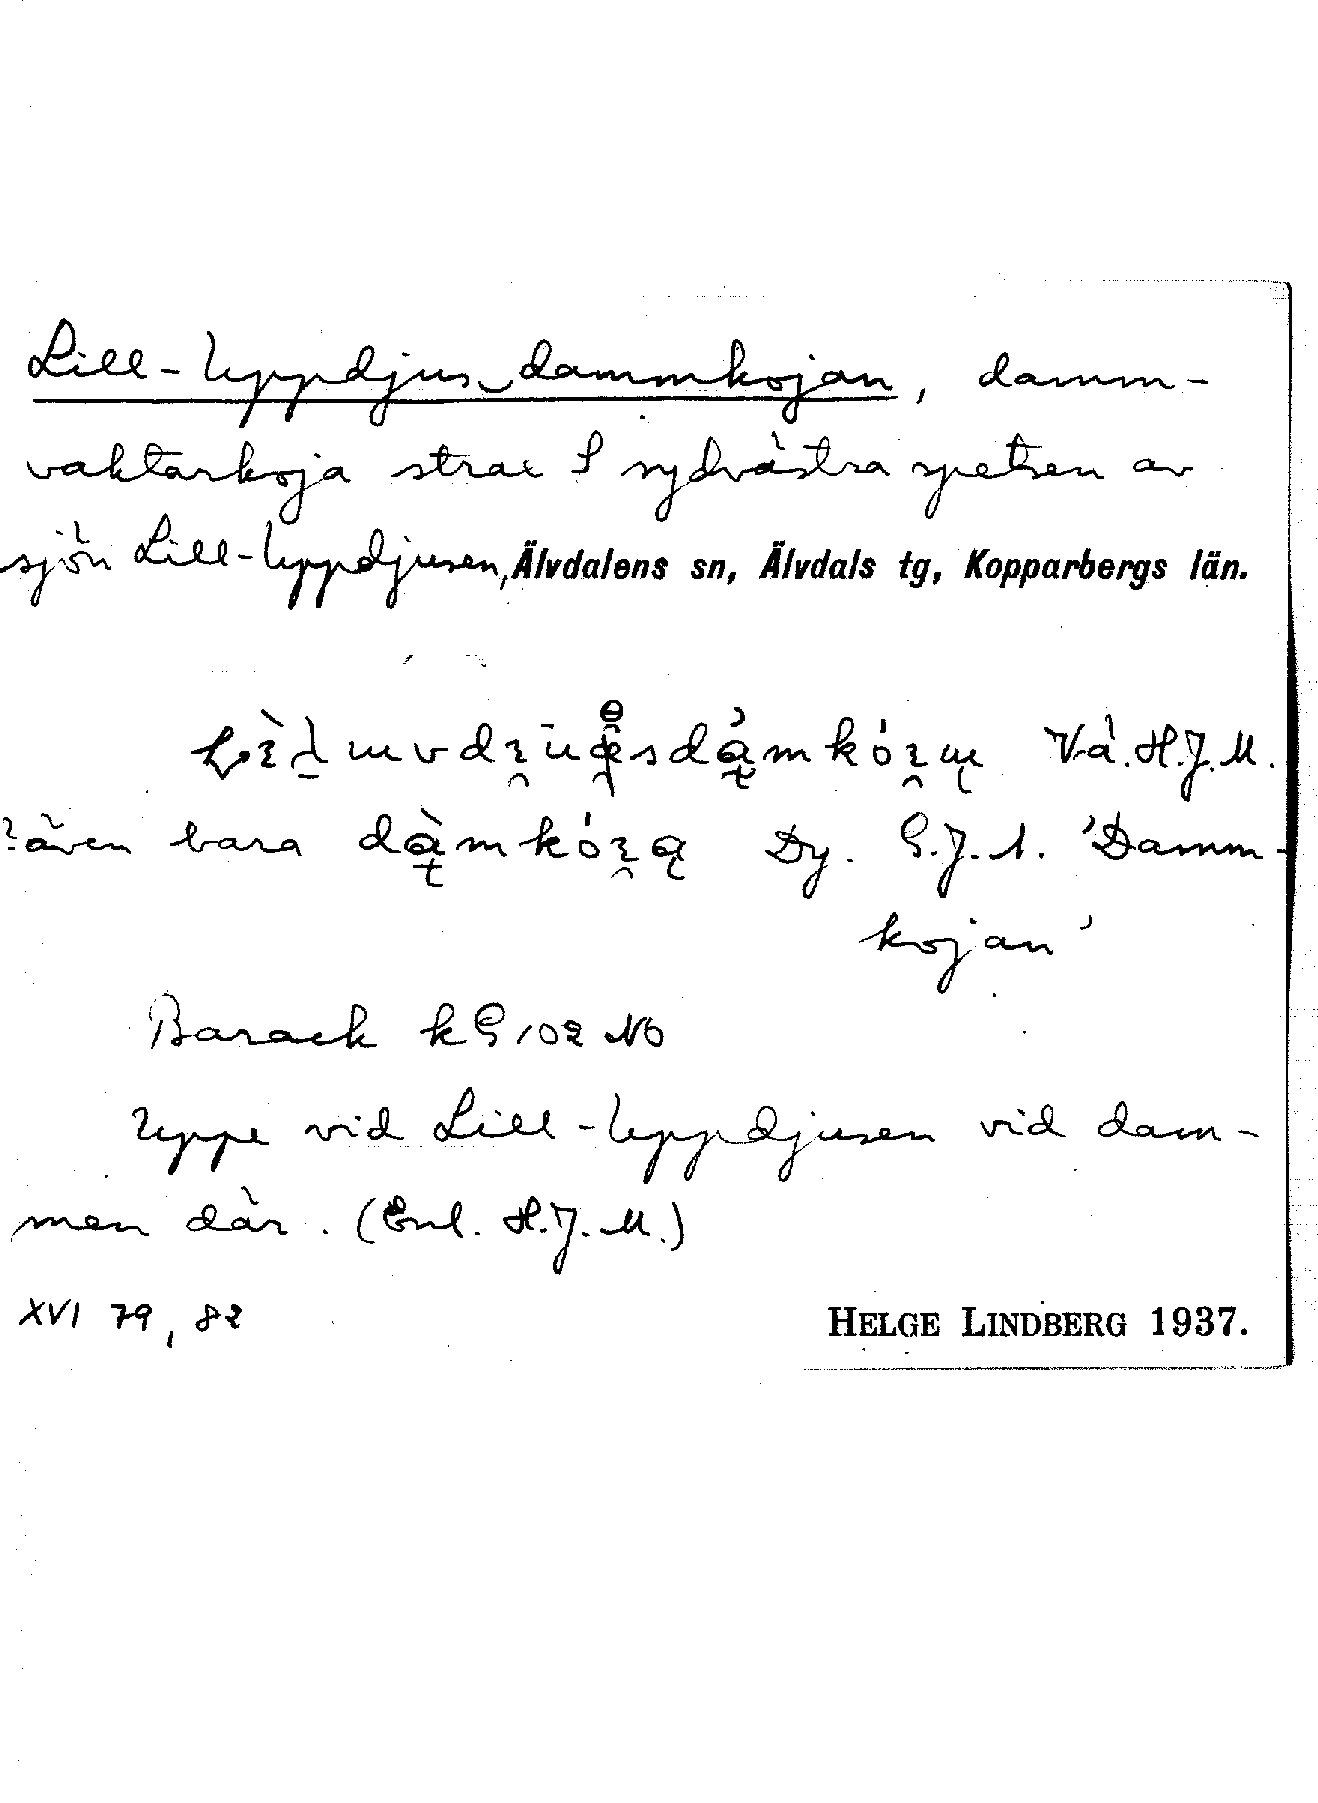 Lill-Uppdjus dammkojan, damm-
vaktarkoja strax S sydvästra spetsen av
sjön Lill-Uppdjusen, Älvdalens sn, Älvdals tg, Kopparbergs län.
Vå. H.J.M.
även bara Dy. G.J.A. 'Damm-
kojan'
Barack kG 102 NO
Uppe vid Lill-Uppdjusen vid dam-
men där. (Enl. H.J.M.)
XVI 79, 82
HELGE LINDBERG 1937.